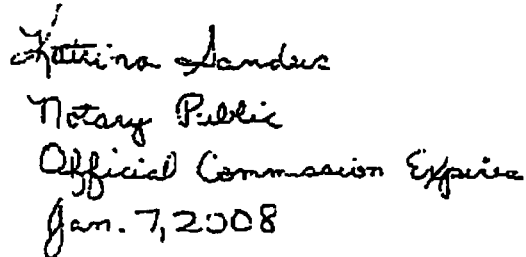 Katrina Sanders
Notary Public
Official Commission Expires
Jan. 7, 2008